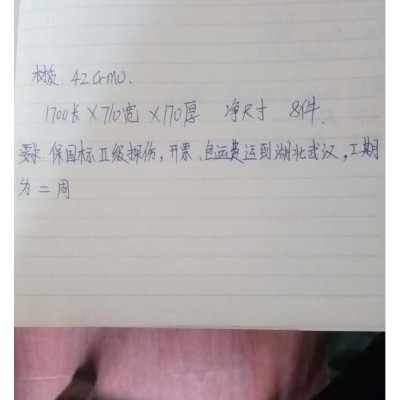 材质. 42crmo.
1700长×710宽×170厚 净尺寸 8件.
要求. 保国标Ⅱ级探伤,开票、包运费运到湖北武汉,工期
为二周